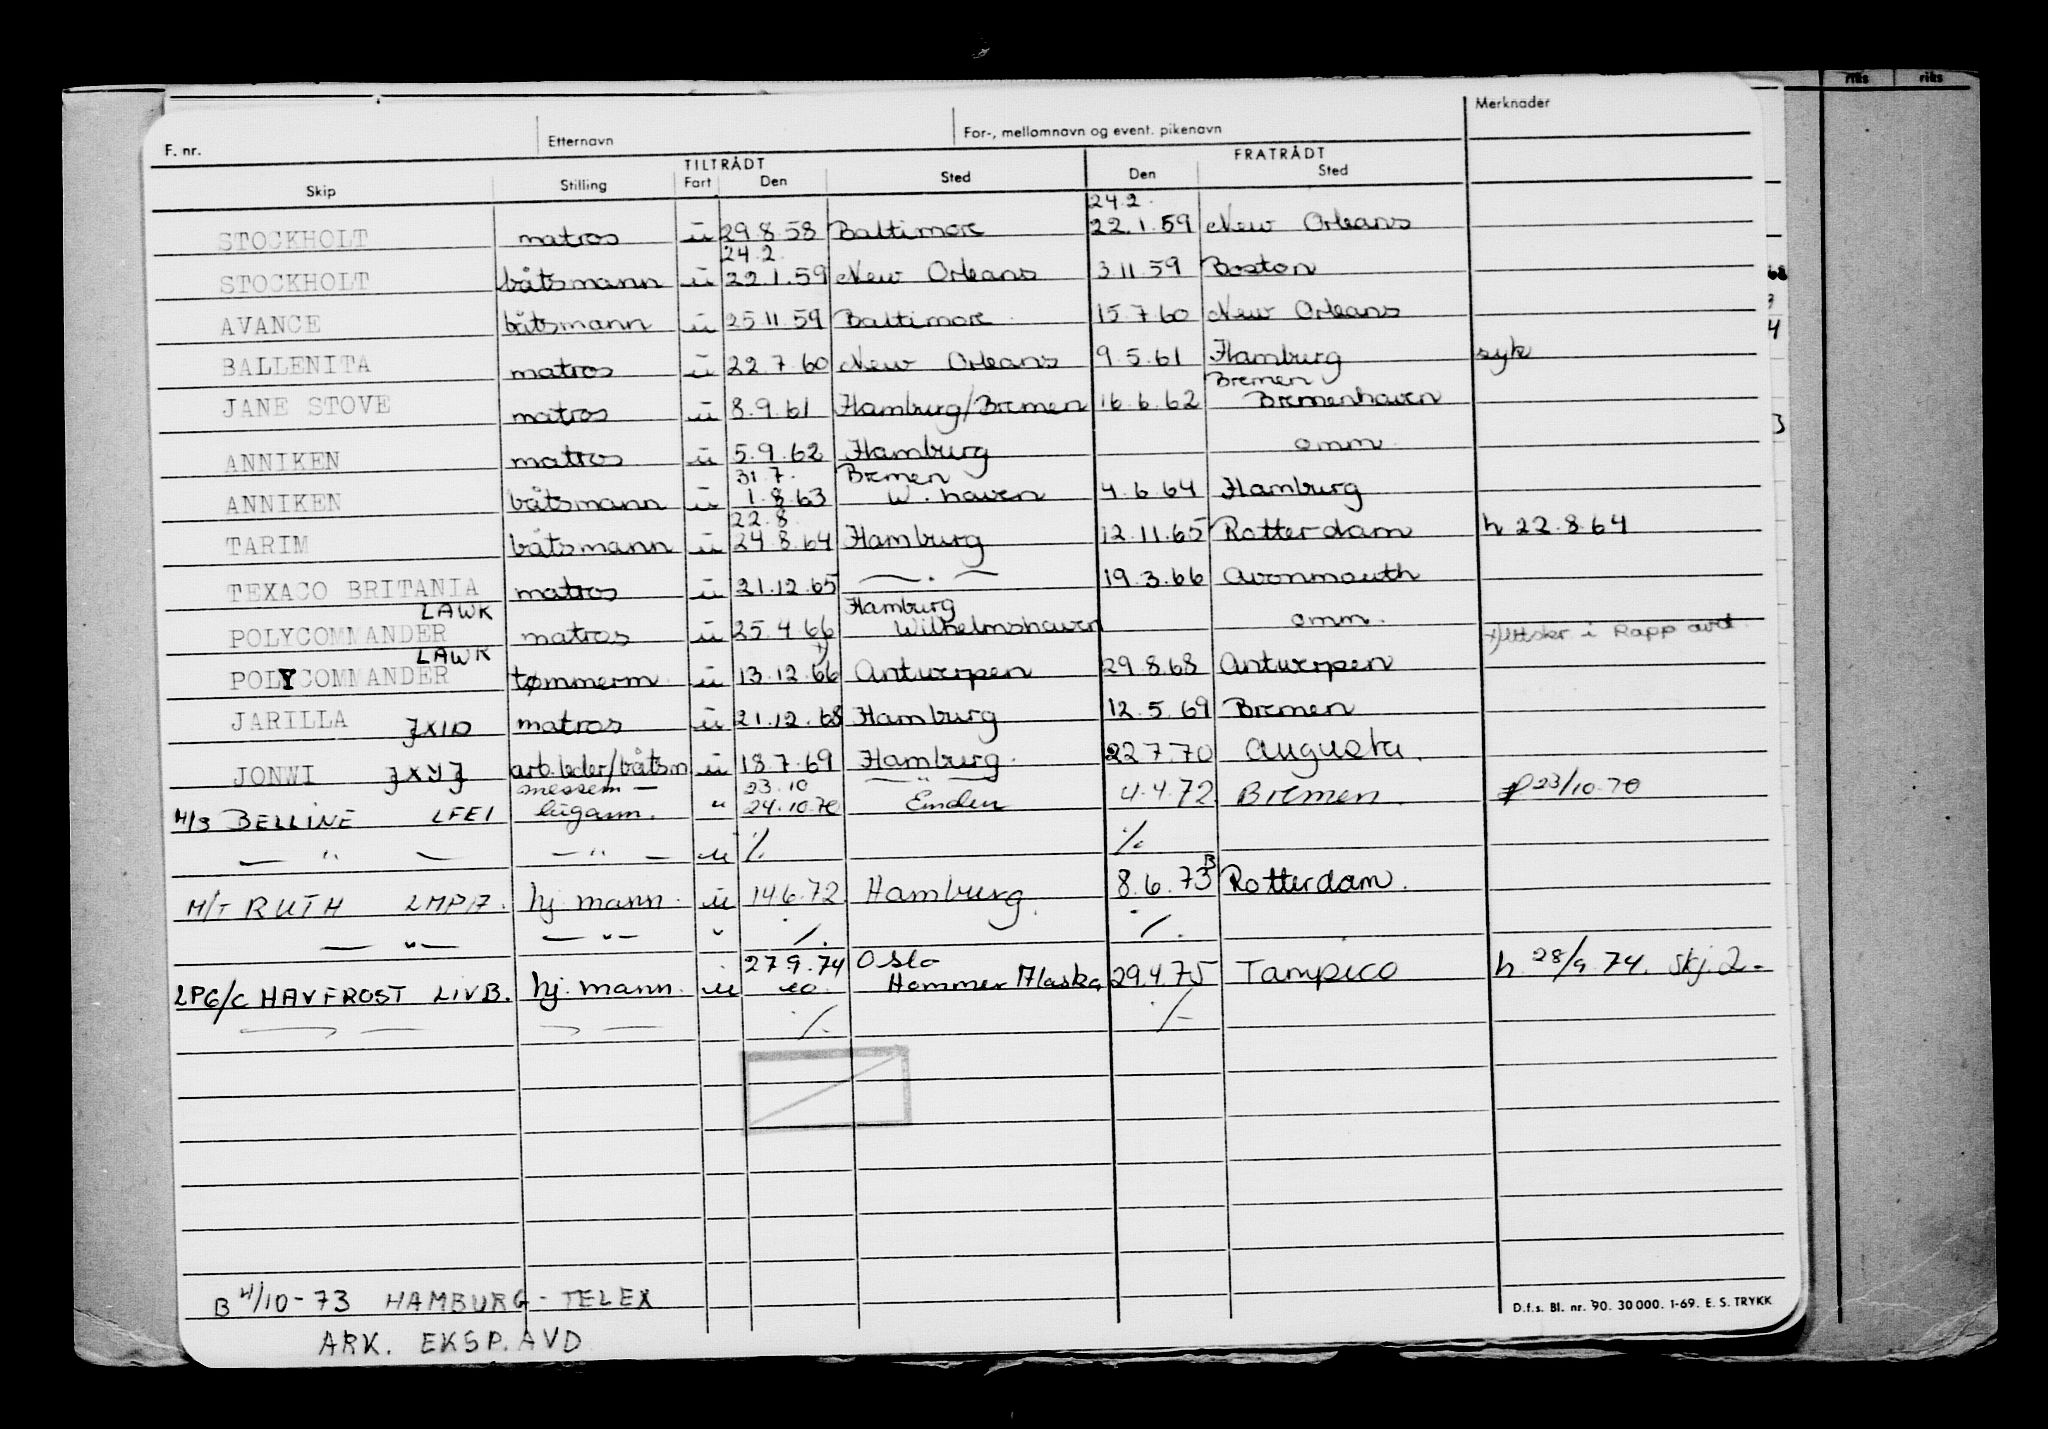 riks riks
F. nr. Etternavn For-, mellomnavn og event. pikenavn Merknader
TILTRÅDT FRATRÅDT
Skip Stilling Fart Den Sted Den Sted
24.2.
STOCKHOLT matros u 29.8.58 Baltimore 22.1.59 New Orleans
24.2.
STOCKHOLT båtsmann u 22.1.59 New Orleans 3.11.59 Boston
AVANCE båtsmann u 25.11.59 Baltimore 15.7.60 New Orleans
BALLENITA matros u 22.7.60 New Orleans 9.5.61 Hamburg syk
Bremen
JANE STOVE matros u 8.9.61 Hamburg/Bremen 16.6.62 Bremenhaven
ANNIKEN matros u 5.9.62 Hamburg omm
31.7. Bremen
ANNIKEN båtsmann u 1.8.63 W.haven 4.6.64 Hamburg
22.8.
TARIM båtsmann u 24.8.64 Hamburg 12.11.65 Rotterdam h 22.8.64
TEXACO BRITANIA matros u 21.12.65 — . — 19.3.66 Avonmouth
LAWK Hamburg
POLYCOMMANDER matros u 25.4.66 Wilhelmshaven omm. x) Utskr i Rapp avd.
LAWK x)
POLYCOMMANDER tømmerm u 13.12.66 Antwerpen 29.8.68 Antwerpen
JARILLA JXID matros u 21.12.68 Hamburg 12.5.69 Bremen
JONWI JXYJ arb.leder/båtsm u 18.7.69 Hamburg. 22.7.70 Augusta.
messem — 23.10 — " —
M/S BELLINE LFEI lugarm. " 24.10.70 Emden 4.4.72 Bremen. 23/10-70
— " — — " — u ./. ./.
B
M/T RUTH LMPA. hj. mann. u 14.6.72 Hamburg. 8.6.73 Rotterdam.
— " — — " — " ./. ./.
27.9.74 Oslo
LPG/C HAVFROST LIVB. hj. mann. u Hammer Alaska 29.4.75 Tampico h 28/9.74. Skj.2.
— — — — ./. ./.
B 4/10-73 HAMBURG-TELEX
D.f.s. Bl. nr. 90. 30 000. 1-69. E. S. TRYKK
ARK. EKSP. AVD